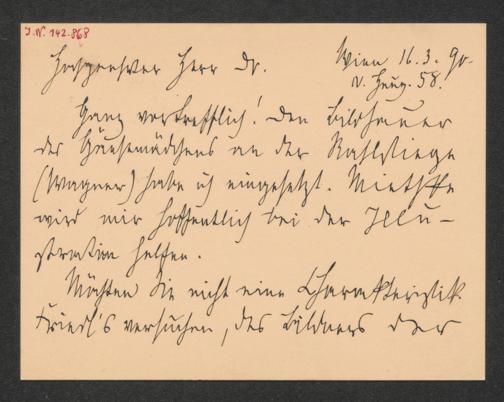 J.N. 142.868
Wien 16.3.90.
Hochgeehrter Herr Dr.
V. Heug. 58.
Ganz vortrefflich! Den Bildhauer
des Gänsemädchens an der Rahlstiege
(Wagner) habe ich eingesetzt.
wird mir hoffentlich bei der Illu-
stration helfen.
Möchten Sie nicht eine Charakteristik
Friedl's versuchen, des Bildners der